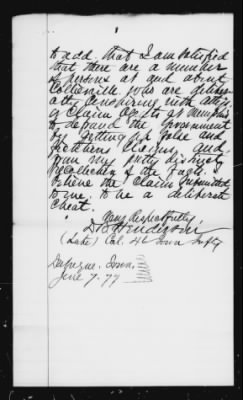 to add that I am satisfied
that there are a number
of persons at and about
Collierville who are
conspiring with attys.
or Claim Agents at Memphis
to defraud the Government
by getting up false and
fictitious Claims, and
from my pretty distinct
recollection of the facts I
believe the Claim submitted
to me to be a deliberate
cheat.
Very Respectfully,
D B Henderson
(Late) Col. 46 Iowa Infty
Dubuque, Iowa,
June 7-77